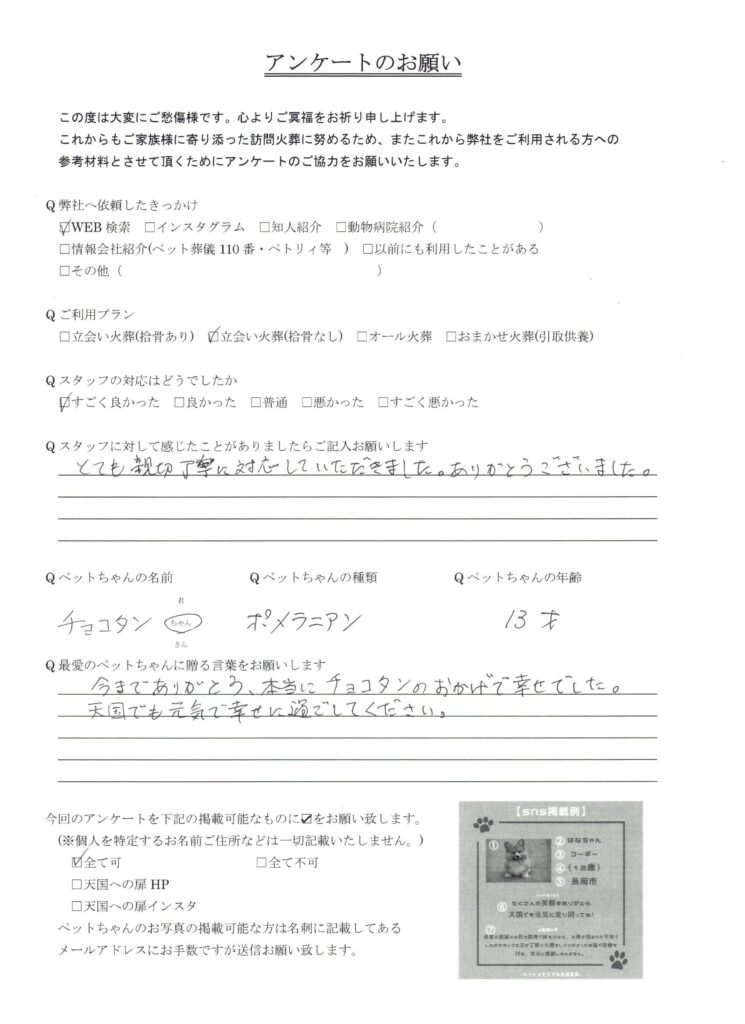 アンケートのお願い
この度は大変にご愁傷様です。心よりご冥福をお祈り申し上げます。
これからもご家族様に寄り添った訪問火葬に努めるため、またこれから弊社をご利用される方への
参考材料とさせて頂くためにアンケートのご協力をお願いいたします。
Q 弊社へ依頼したきっかけ
☑WEB 検索 □インスタグラム □知人紹介 □動物病院紹介（ ）
□情報会社紹介(ペット葬儀 110 番・ペトリィ等 ) □以前にも利用したことがある
□その他（ ）
Q ご利用プラン
□立会い火葬(拾骨あり) ☑立会い火葬(拾骨なし) □オール火葬 □おまかせ火葬(引取供養)
Q スタッフの対応はどうでしたか
☑すごく良かった □良かった □普通 □悪かった □すごく悪かった
Q スタッフに対して感じたことがありましたらご記入お願いします
とても親切丁寧に対応していただきました。ありがとうございました。
Q ペットちゃんの名前 Q ペットちゃんの種類 Q ペットちゃんの年齢
君
チョコタン ちゃん ポメラニアン 13才
さん
Q 最愛のペットちゃんに贈る言葉をお願いします
今までありがとう、本当にチョコタンのおかげで幸せでした。
天国でも元気で幸せに過ごしてください。
今回のアンケートを下記の掲載可能なものに☑をお願い致します。
(※個人を特定するお名前ご住所などは一切記載いたしません。)
☑全て可 □全て不可
□天国への扉 HP
□天国への扉インスタ
ペットちゃんのお写真の掲載可能な方は名刺に記載してある
メールアドレスにお手数ですが送信お願い致します。
【sns掲載例】
① ② はなちゃん
③ コーギー
④ (12歳)
⑤ 長岡市
⑥ たくさんの笑顔をありがとう
天国でも元気に走り回ってね!
⑦